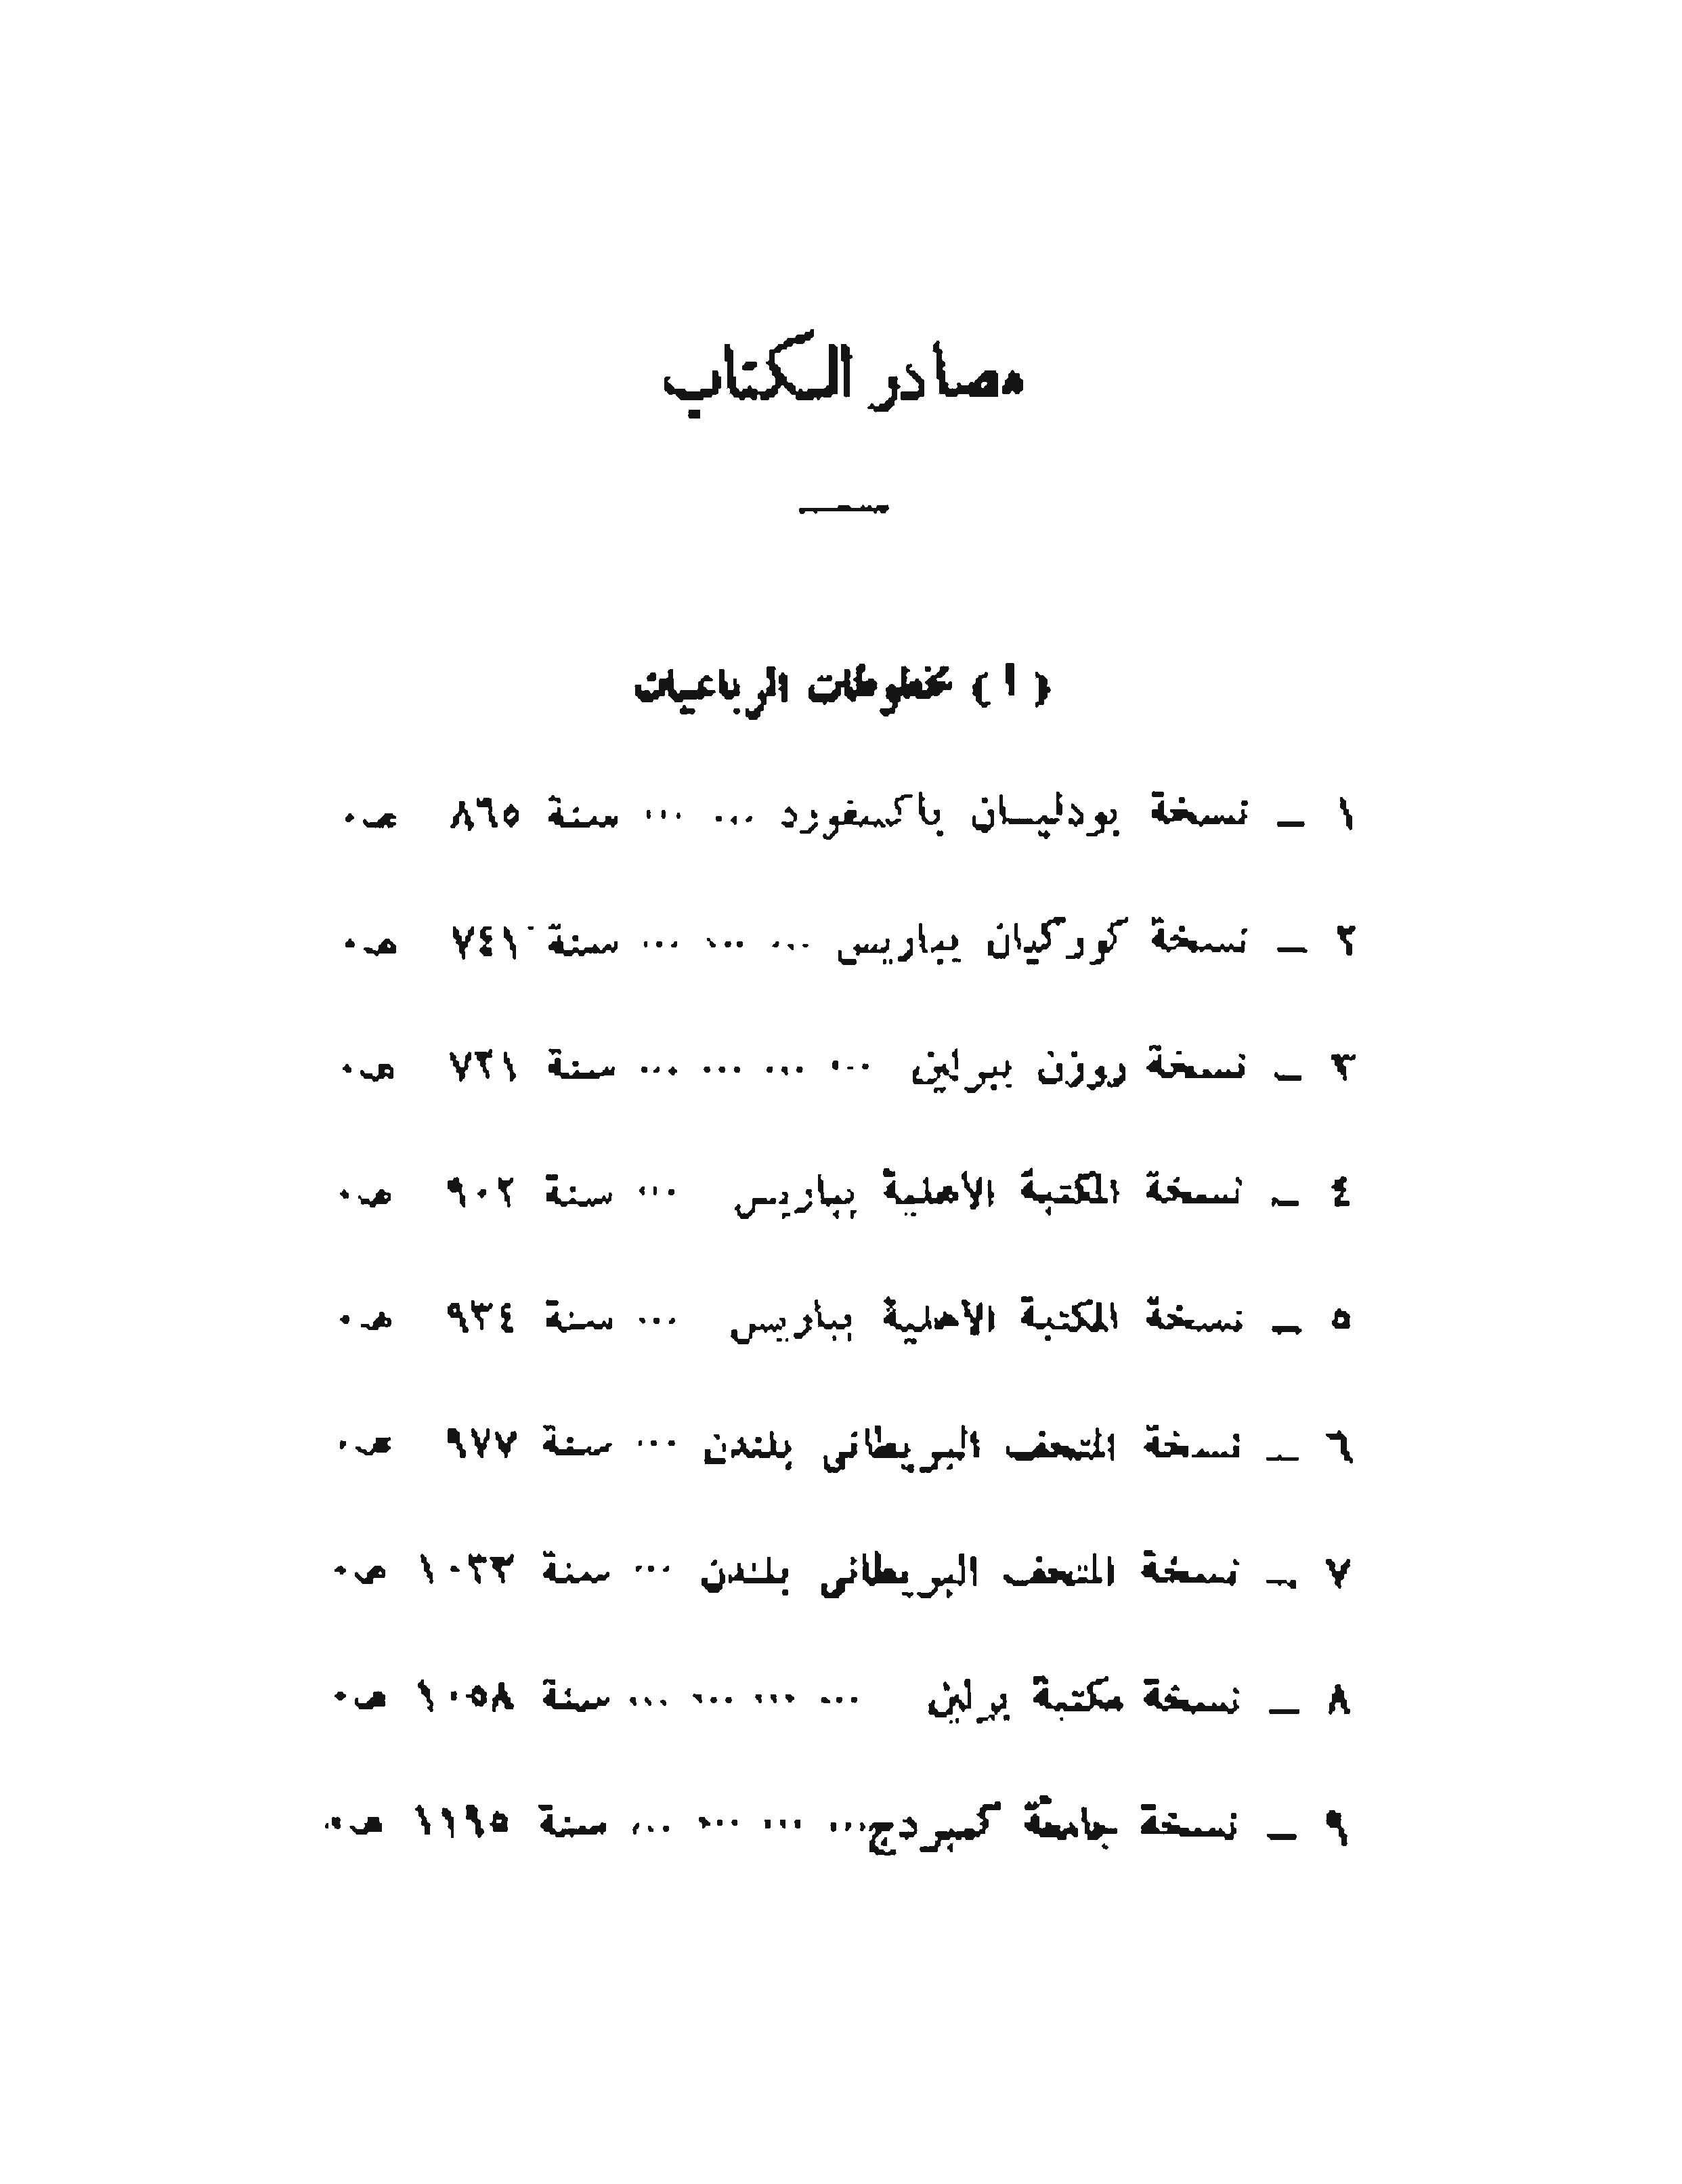 مصادر الكتاب
( ا ) مخطوطات الرباعيات
١ — نسخة بودليان باكسفورد ... ... سنة ٨٦٥ هـ.
٢ — نسخة كوركيان بباريس ... ... ... سنة ٧٤١ هـ.
٣ — نسخة روزن ببرلين ... ... ... ... سنة ٧٢١ هـ.
٤ — نسخة المكتبة الاهلية بباريس ... سنة ٩٠٢ هـ.
٥ — نسخة المكتبة الاهلية بباريس ... سنة ٩٣٤ هـ.
٦ — نسخة المتحف البريطانى بلندن ... سنة ٩٧٧ هـ.
٧ — نسخة المتحف البريطانى بلندن ... سنة ١٠٣٣ هـ.
٨ — نسخة مكتبة برلين ... ... ... ... سنة ١٠٥٨ هـ.
٩ — نسخة جامعة كمبردج ... ... ... ... سنة ١١٩٥ هـ.